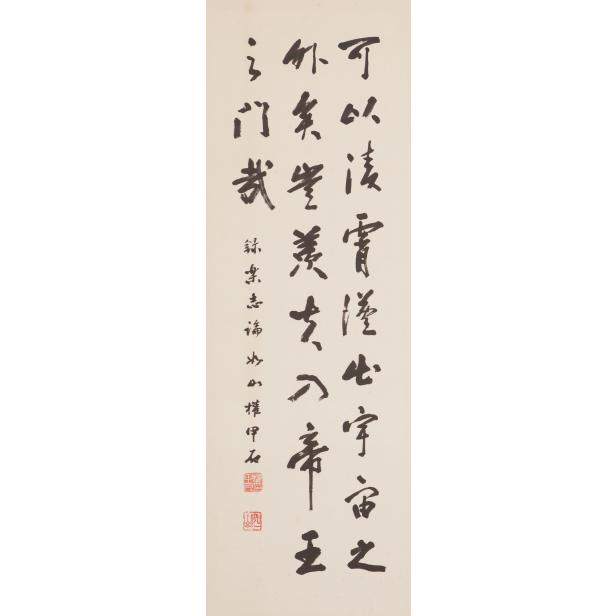 可以凌霄漢出宇宙之
外矣豈羨夫入帝王
之門哉
錄樂志論 如山權甲石